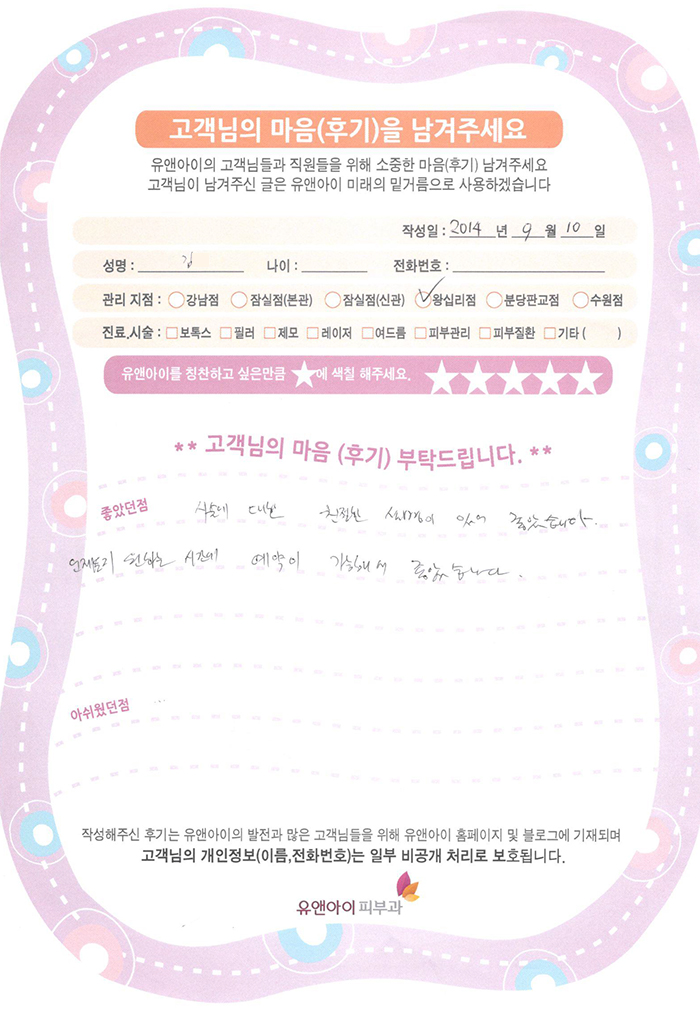 고객님의 마음(후기)을 남겨주세요
유앤아이의 고객님들과 직원들을 위해 소중한 마음(후기) 남겨주세요
고객님이 남겨주신 글은 유앤아이 미래의 밑거름으로 사용하겠습니다
작성일 : 2014 년 9 월 10 일
성명 : 김 나이 : 전화번호 :
관리 지점 : 강남점 잠실점(본관) 잠실점(신관) 왕십리점 분당판교점 수원점
진료,시술 : 보톡스 필러 제모 레이저 여드름 피부관리 피부질환 기타 ( )
유앤아이를 칭찬하고 싶은만큼 ★에 색칠 해주세요. ★★★★★
** 고객님의 마음 (후기) 부탁드립니다. **
좋았던점 시술에 대한 친절한 설명이 있어 좋았습니다.
원하는 시간에 예약이 가능해서 좋았습니다.
아쉬웠던점 ...
작성해주신 후기는 유앤아이의 발전과 많은 고객님들을 위해 유앤아이 홈페이지 및 블로그에 기재되며
고객님의 개인정보(이름,전화번호)는 일부 비공개 처리로 보호됩니다.
유앤아이피부과